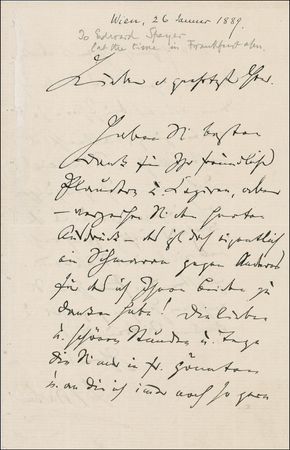 Wien, 26 Januar 1889.
To Edward Speyer
(at the time in Frankfurt a/m.
Lieber u. geehrtester Herr.
Haben Sie besten
Dank für Ihr freundliches
Plaudern u. aber
— verzeihen Sie den harten
Ausdruck — das ist doch eigentlich
ein Schmarren gegen Anderes
für das ich Ihnen beiden zu
danken habe! Die lieben
u. schönen Stunden u. Tage
die Sie mir in Fr. gönnten
u. an die ich immer noch so gern